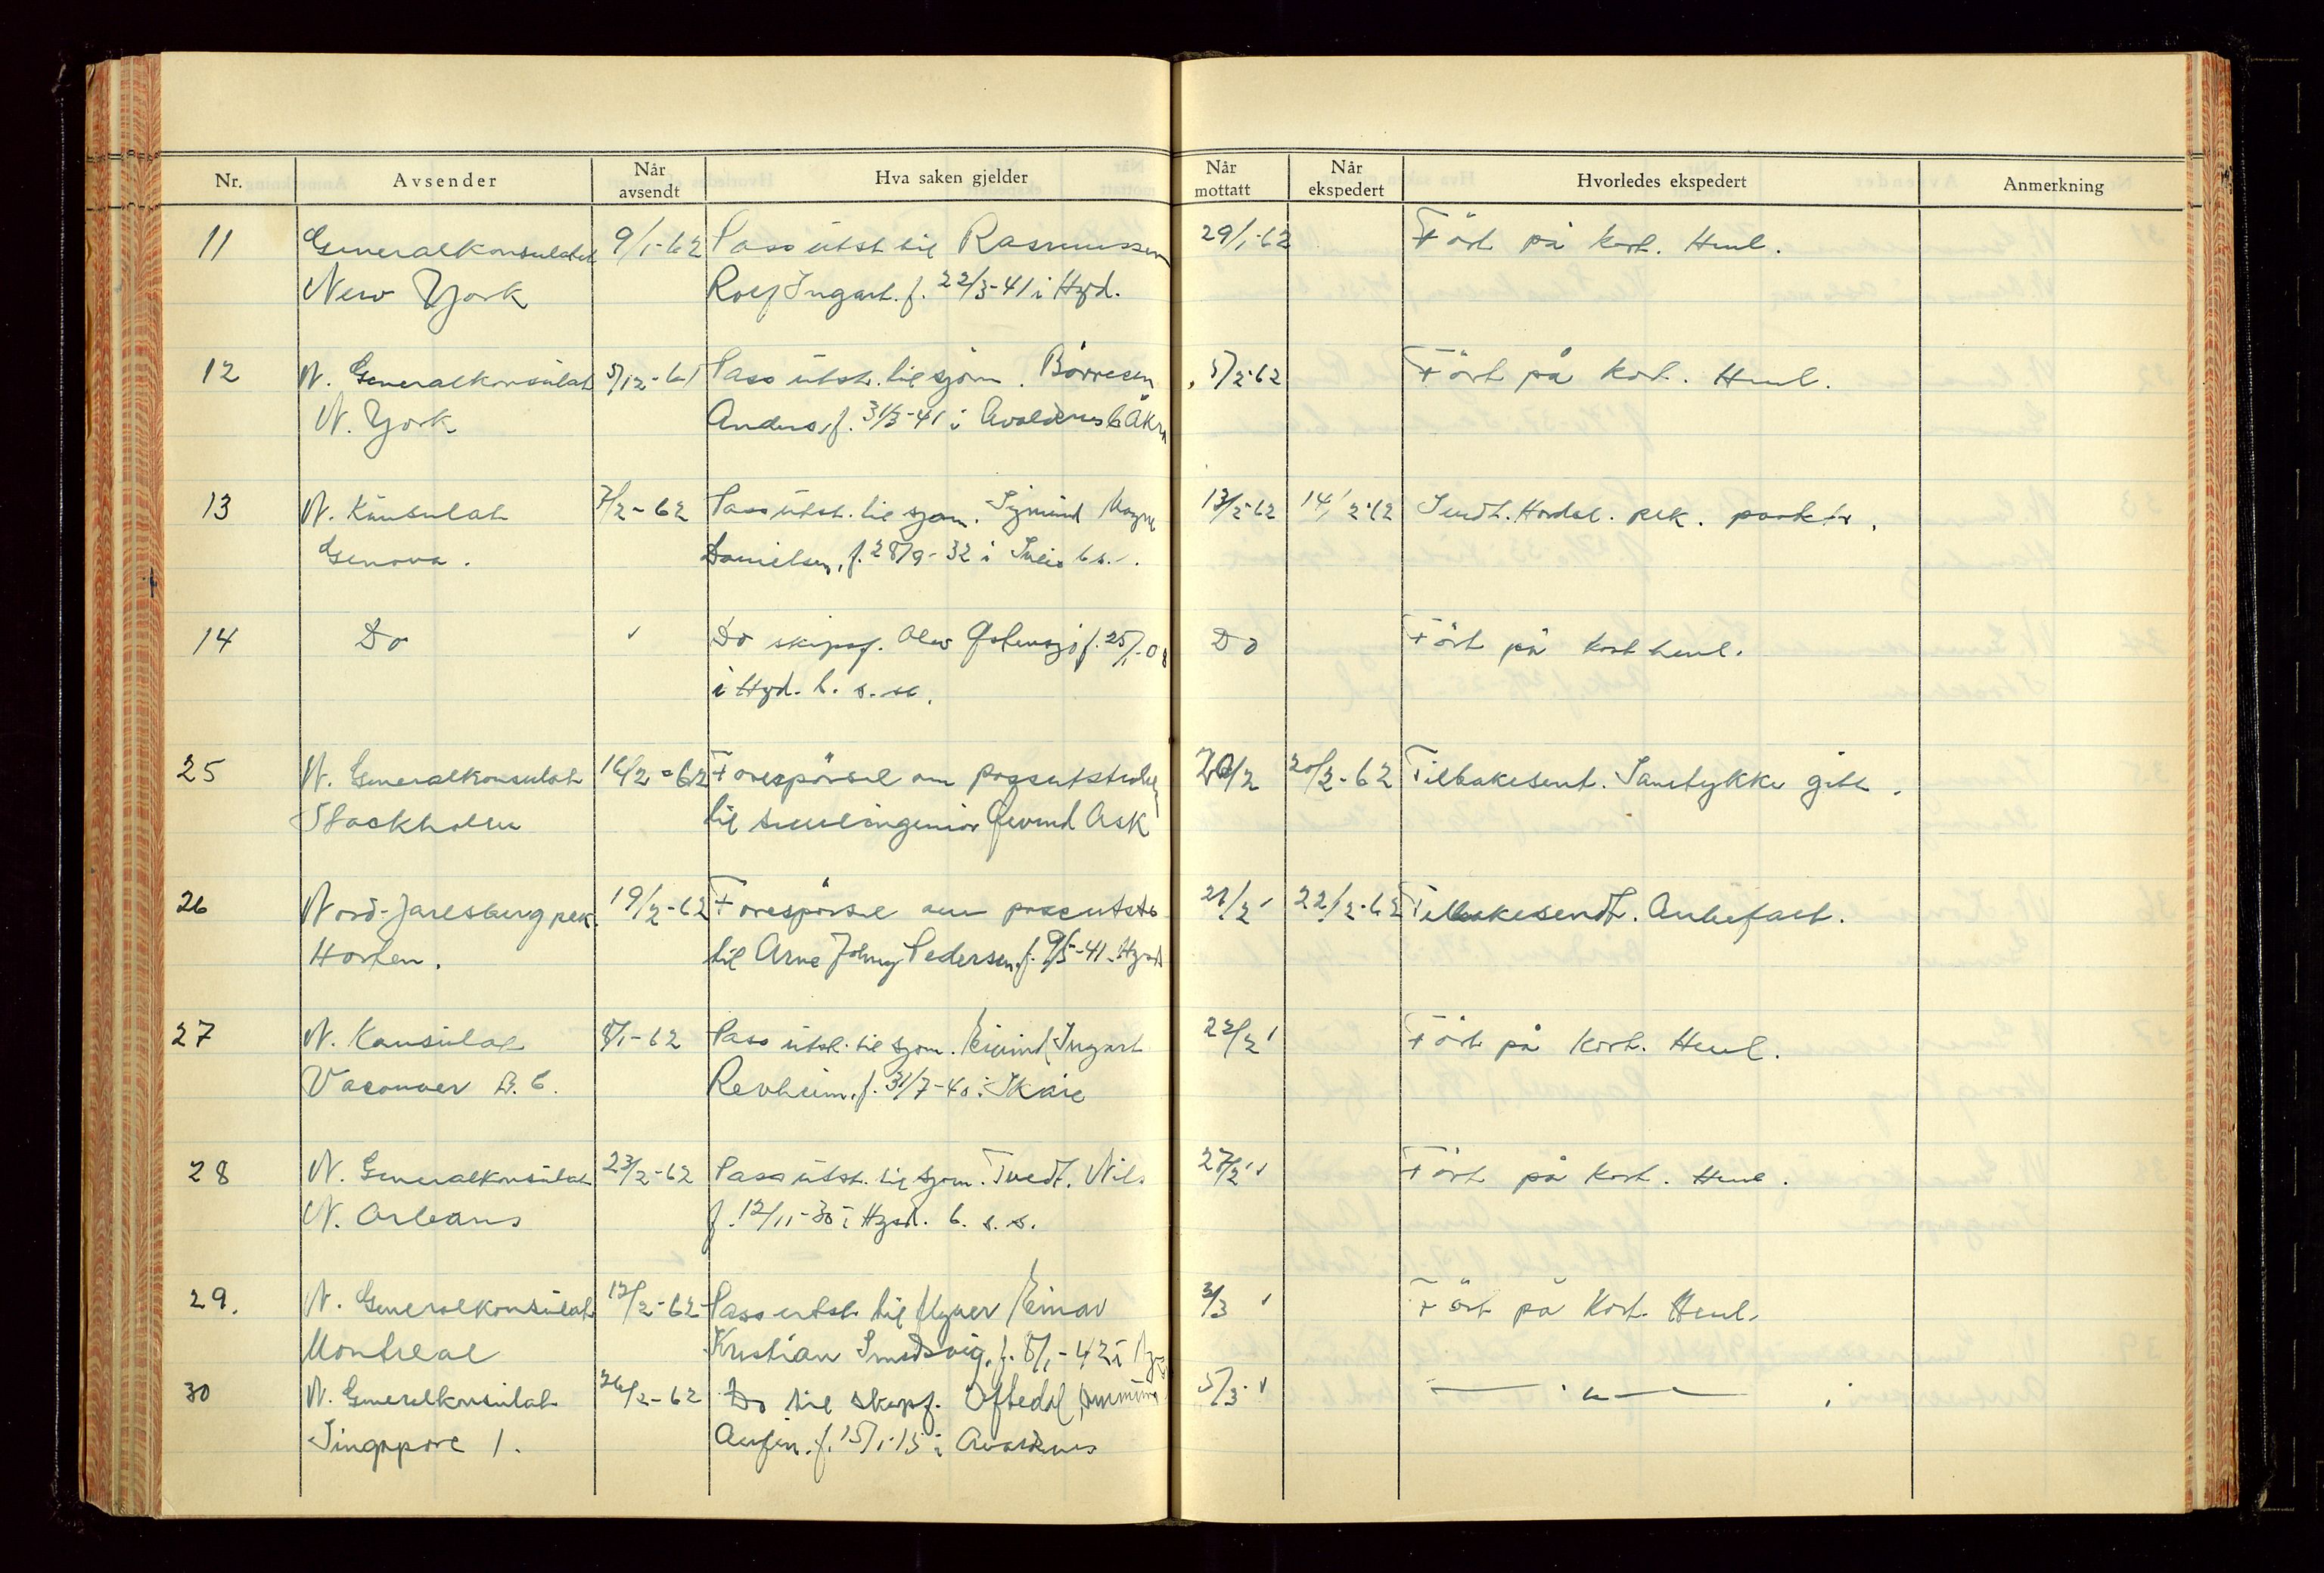 Nr. Avsender Når avsendt Hva saken gjelder Når mottatt Når ekspedert Hvorledes ekspedert Anmerkning
11 Generalkonsulatet 9/1-62 Pass utst til Rasmussen 29/1-62 Fört på kort. Henl.
New York Rolf Ingart. f. 22/3-41 i Hgsd.
12 N. Generalkonsulat 5/12-61 Pass utst. til sjöm. Börresen 5/2-62 Fört på kort. Henl.
N. York Anders, f. 31/3-41 i Avaldsnes b Åkra
13 N. Konsulat 7/2-62 Pass utst. til sjöm. Sigmund Magne 13/2-62 14/2-62 Sendt. Hordal. pk.
Genova. Danielsen, f. 28/9-32 i b.s.
14 Do Do skipsf. Olav Østensjö f. 25/1-08 Do Fört på kort henl.
i Hgsd. b. s. st.
25 N. Generalkonsulat 16/2-62 Forespörsel om passutstedelse 20/2 20/2-62 Tilbakesent. Samtykke gitt.
Stockholm til Øivind Ask
26 Nord-Jarlsberg pk. 19/2-62 Forespörsel om passutst. 21/2 22/2-62 Tilbakesendt. Anbefalt.
Horten. til Arne Johny Pedersen, f. 9/5-41. Hgsd
27 N. Konsulat 8/1-62 Pass utst. til sjöm. Eivind Ingart 22/2 Fört på kort. Henl.
Vacouver B. C. Revheim, f. 31/7-40 i Skåre
28 N. Generalkonsulat 23/2-62 Pass utst. til sjöm. Tvedt. Nils 27/2 Fört på kort. Henl.
N. Orleans f. 12/11-30 i Hgsd. b. s. s.
29. N. Generalkonsulat 12/2-62 Pass utst til flyver Einar 3/3 Fört på kort. Henl.
Montreal Kristian Smedsvig, f. 8/1-42 i
30 N. Generalkonsulat 26/2-62 Do til skipsf. Oftedal 5/3 — " —
Singapore 1. f. 15/1-15 i Avaldsnes